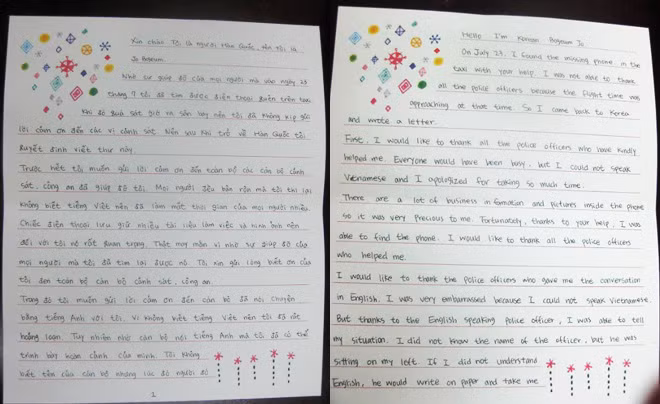 Xin chào. Tôi là người Hàn Quốc, tên tôi là
Jo Bogeum.
Nhờ sự giúp đỡ của mọi người mà vào ngày 23
tháng 7 tôi đã tìm được điện thoại quên trên taxi
Khi đó quá sát giờ ra sân bay nên tôi đã không kịp gửi
lời cảm ơn đến các vị cảnh sát. Nên sau khi trở về Hàn Quốc tôi
quyết định viết thư này.
Trước hết tôi muốn gửi lời cảm ơn đến toàn bộ các cán bộ cảnh
sát, công an đã giúp đỡ tôi. Mọi người đều bận rộn mà tôi thì lại
không biết tiếng Việt nên đã làm mất thời gian của mọi người nhiều.
Chiếc điện thoại lưu giữ nhiều tài liệu làm việc và hình ảnh nên
đối với tôi nó rất quan trọng. Thật may mắn vì nhờ sự giúp đỡ của
mọi người mà tôi đã tìm lại được nó. Tôi xin gửi lòng biết ơn của
tôi đến toàn bộ cán bộ cảnh sát, công an.
Trong đó tôi muốn gửi lời cảm ơn đến cán bộ đã nói chuyện
bằng tiếng Anh với tôi. Vì không biết tiếng Việt nên tôi đã rất
hoảng loạn. Tuy nhiên nhờ cán bộ nói tiếng Anh mà tôi đã có thể
trình bày hoàn cảnh của mình. Tôi không
biết tên của cán bộ nhưng lúc đó người đó
1
Hello I'm Korean Bogeum Jo
On July 23, I found the missing phone in the
taxi with your help. I was not able to thank
all the police officers because the flight time was
approaching at that time. So I came back to Korea
and wrote a letter.
First, I would like to thank all the police officers who have kindly
helped me. Everyone would have been busy, but I could not speak
Vietnamese and I apologized for taking so much time.
There are a lot of business information and pictures inside the phone
so it was very precious to me. Fortunately, thanks to your help, I was
able to find the phone. I would like to thank all the police officers
who helped me.
I would like to thank the police officers who gave me the conversation
in English. I was very embarrassed because I could not speak Vietnamese.
But thanks to the English speaking police officer, I was able to tell
my situation. I did not know the name of the officer, but he was
sitting on my left. If I did not understand
English, he would write on paper and take me